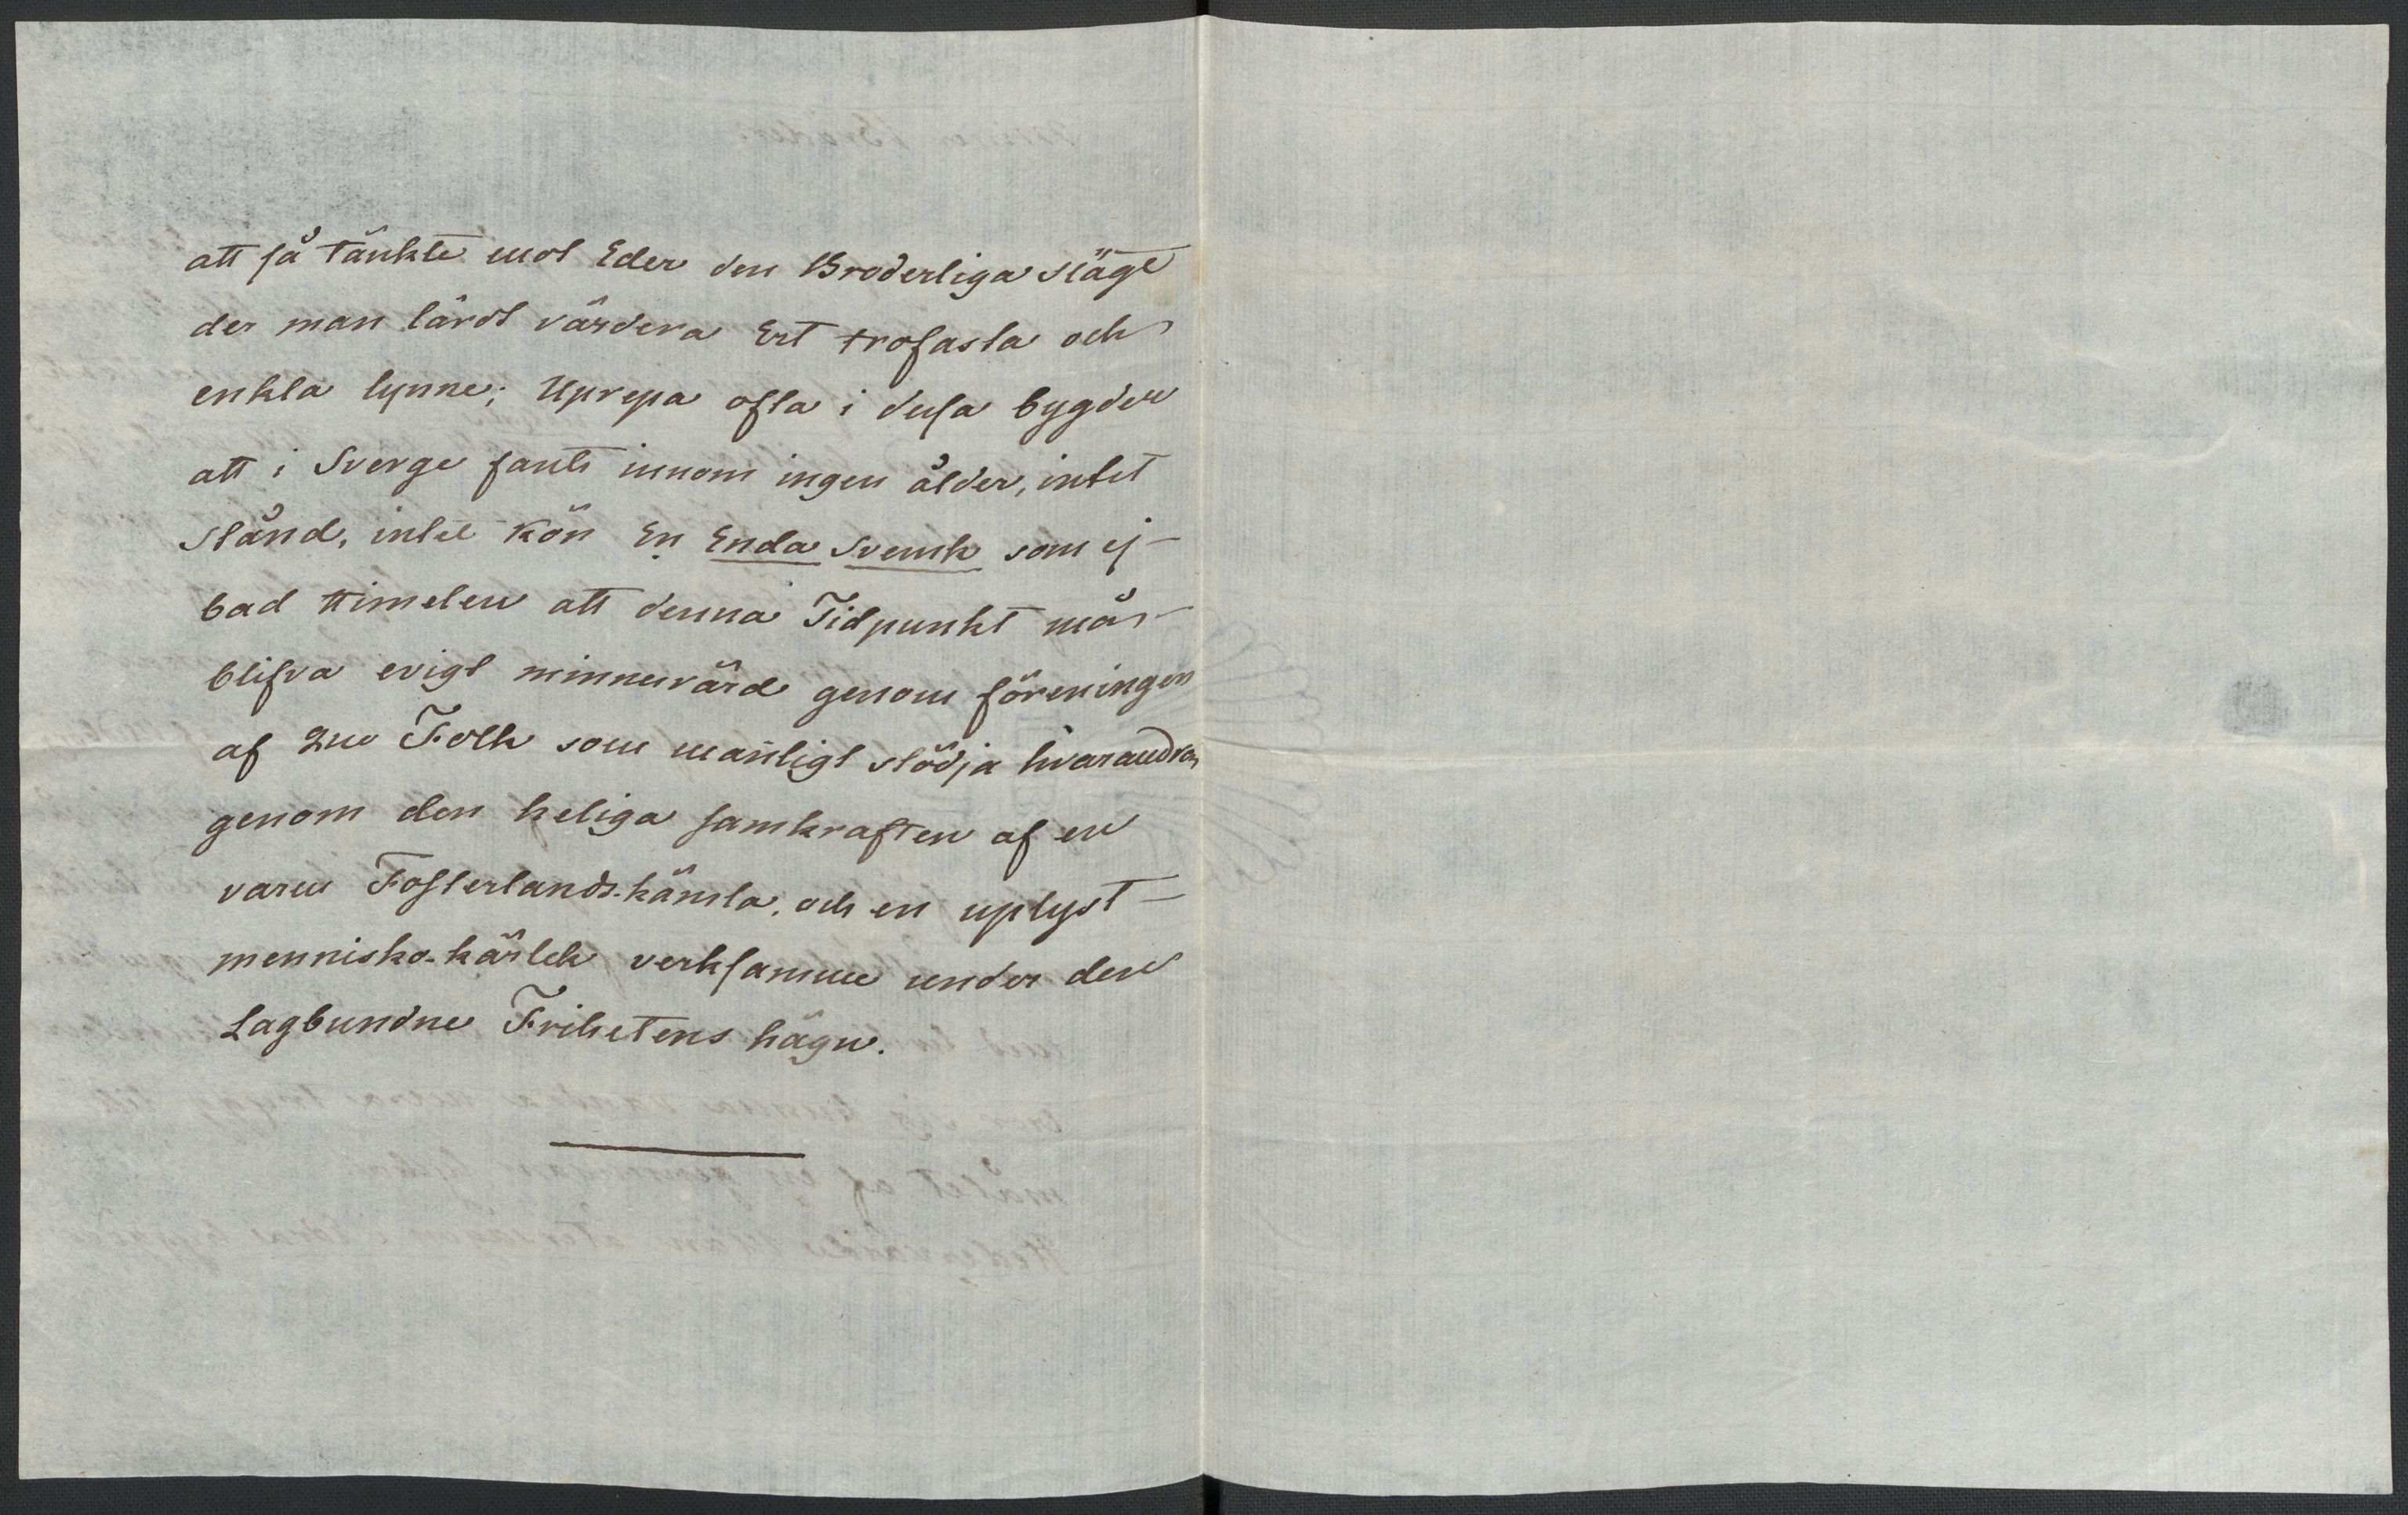 att så tänkte mot Eder den Broderliga slägt
der man lärdt värdera Ert trofasta och
enkla lynne; Uprepa ofta i dessa bygder
att i Sverge fants innom ingen ålder, intet
stånd, intet kön En Enda Svensk som ej
bad Himelen att denna Tidpunkt må
blifva evigt minnesvärd genom föreningen
af 2ne Folk som manligt stödja hvarandra
genom den heliga samkraften af en
varm Fosterlands-känsla, och en uplyst
mennisko-kärlek verksamme under den
Lagbundne Frihetens hägn.